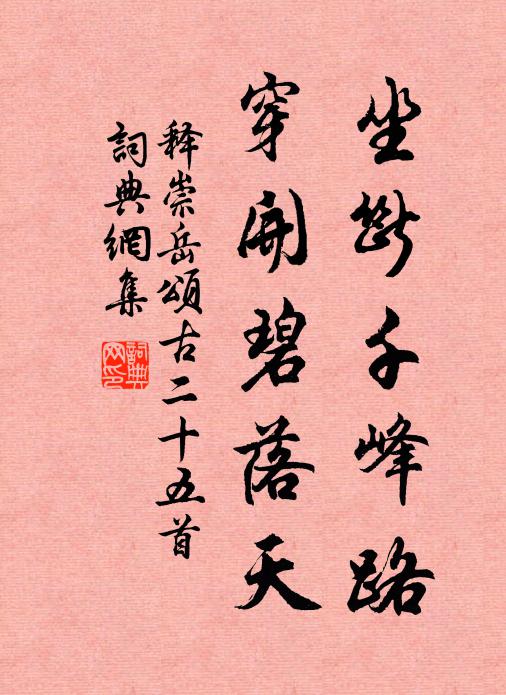 坐断千峰路
穿開碧落天
释崇岳頌古二十五首
詞典網集
詞典網印